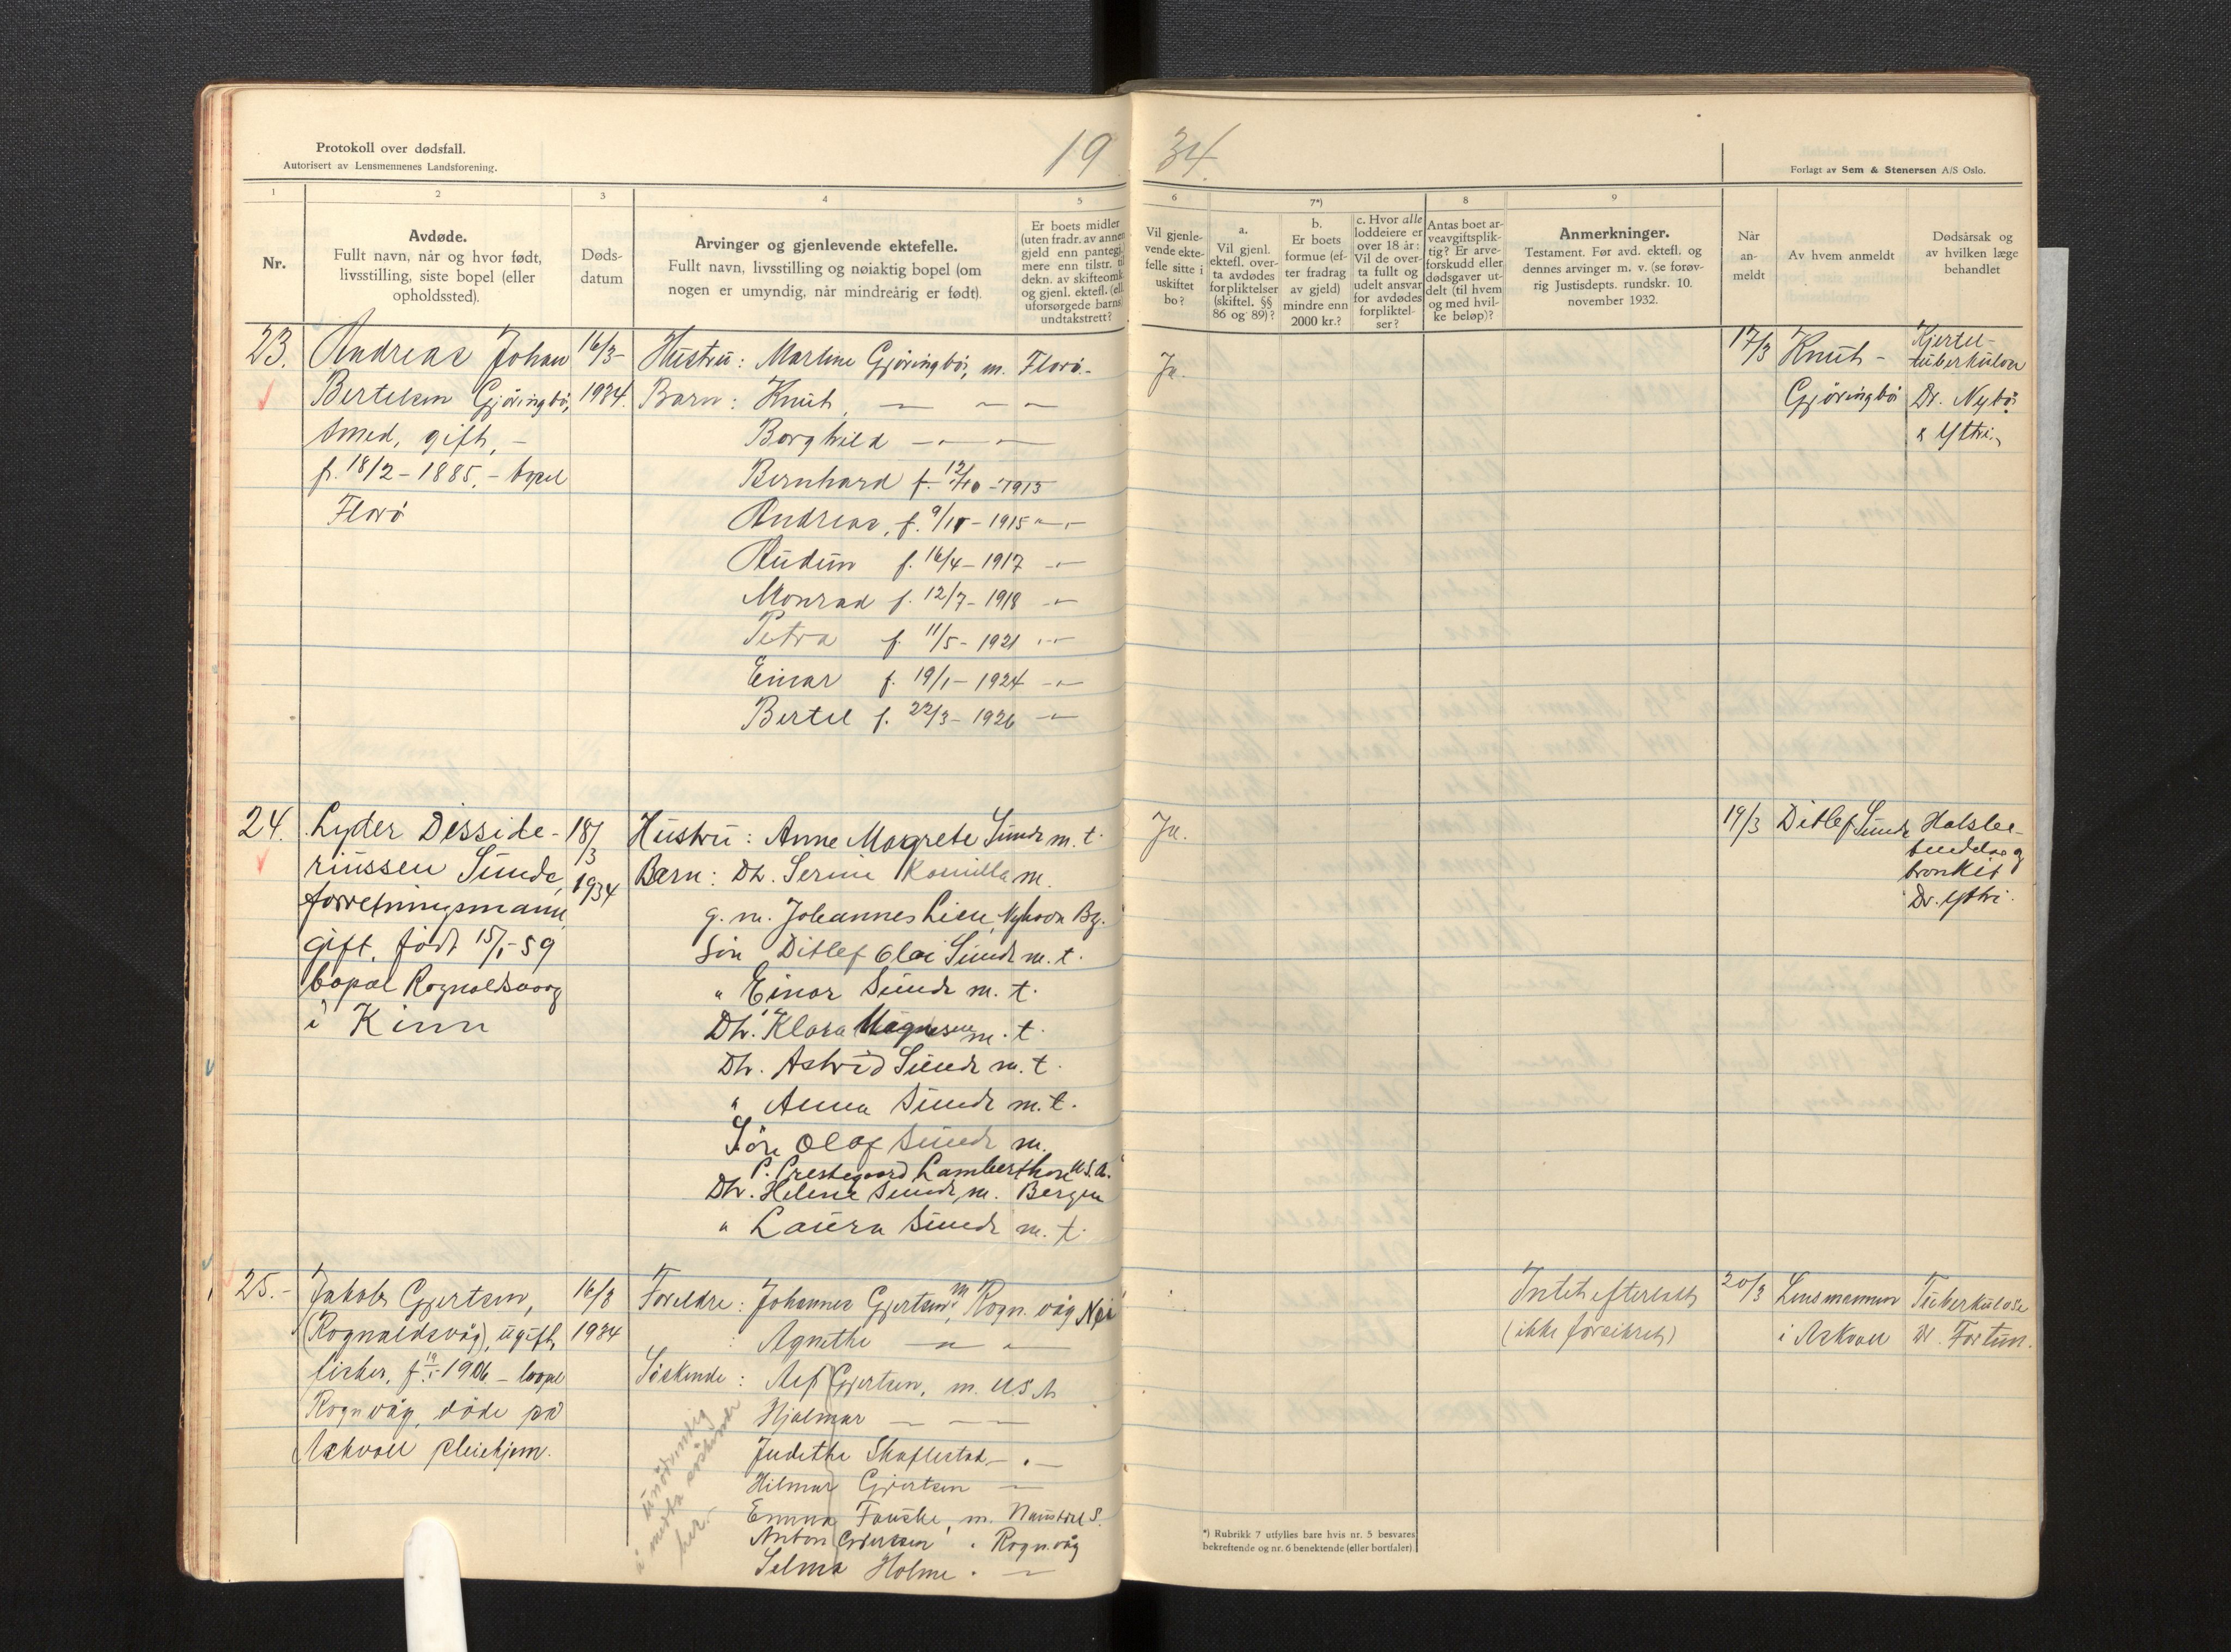 Protokoll over dødsfall.
Autorisert av Lensmennenes Landsforening.
19
34.
Forlagt av Sem & Stenersen A/S Oslo.
1
2
3
4
5
6
7*)
8
9
Nr.
Avdøde.
Fullt navn, når og hvor født,
livsstilling, siste bopel (eller
opholdssted).
Døds-
datum
Arvinger og gjenlevende ektefelle.
Fullt navn, livsstilling og nøiaktig bopel (om
nogen er umyndig, når mindreårig er født).
Er boets midler
(uten fradr. av annen
gjeld enn pantegj.)
mere enn tilstr. til
dekn. av skifteomk.
og gjenl. ektefl. (ell.
uforsørgede barns)
undtakstrett?
Vil gjenle-
vende ekte-
felle sitte i
uskiftet
bo?
a.
Vil gjenl.
ektefl. over-
ta avdødes
forpliktelser
(skiftel. §§
86 og 89)?
b.
Er boets
formue (ef-
ter fradrag
av gjeld)
mindre enn
2000 kr.?
c. Hvor alle
loddeiere er
over 18 år:
Vil de over-
ta fullt og
udelt ansvar
for avdødes
forpliktel-
ser?
Antas boet ar-
veavgiftsplik-
tig? Er arve-
forskudd eller
dødsgaver ut-
delt (til hvem
og med hvil-
ke beløp)?
Anmerkninger.
Testament. Før avd. ektefl. og
dennes arvinger m. v. (se forøv-
rig Justisdepts. rundskr. 10.
november 1932.
Når
an-
meldt
Av hvem anmeldt
Dødsårsak og
av hvilken læge
behandlet
23.
Andreas Johan
Bertelsen Gjøringbø,
smed, gift, -
f. 18/2 - 1885. - bopel
Florø
16/3-
1934.
Hustru: Martine Gjøringbø, m. Florø.-
Barn: Knut, — — —
Borghild — — —
Bernhard f. 12/10 - 1913
Andreas, f. 9/11 - 1915 —
Audun f. 16/4 - 1917 —
Monrad f. 12/7 - 1918 —
Petra f. 11/5 - 1921 —
Einar f. 19/1 - 1924 —
Bertel f. 22/3 - 1926 —
Ja.
17/3
Knut -
Gjøringbø
Kjertel-
tuberkulose
Dr. Nybø
& Ytri.
24.
Lyder Desside-
riussen Sunde,
forretningsmann,
gift, født 15/1-59
bopal Rognaldsvaag
i Kinn
18/
/3
1934
Hustru: Anne Magrete Sunde m. t.
Barn: Dt. Serine Kamilla m.
g. m. Johannes Lien, Nyhavn Bg.
Søn Ditlef Olai Sunde m. t.
" Einar Sunde m. t.
Dt. Klara Magnesen m. t.
Dt. Astrid Sunde m. t.
" Anna Sunde m. t.
Søn Olaf Sunde m.
U.S.A.
Dt. Helene Sunde, m. Bergen
" Laura Sunde m. t.
Ja.
19/3
Ditlef Sunde
og
bronkit
Dr. Ytri.
25.-
Jakob Gjertsen,
(Rognaldsvåg), ugift,
fisker, f. 1906 - bopel
Rognvåg, døde på
Askvoll pleiehjem.
16/3
1934
Foreldre: Johannes Gjertsen, m. Rogn.våg Nei
: Agnethe — —
Søskende: Alf Gjertsen, m. USA
Hjalmar — — —
Judithe Skaflestad — . —
Hilmar Gjertsen —
Emma Fauske, m. Naustdal S.
Anton Gjertsen " Rogn.våg
Selma Holme " —
unødvendig
å medta søskende
her.-
Intet efterlatt
(ikke forsikret)
20/3
Lensmannen
i Askvoll
Tuberkulose
Dr. Fortun.
*) Rubrikk 7 utfylles bare hvis nr. 5 besvares
bekreftende og nr. 6 benektende (eller bortfaler)